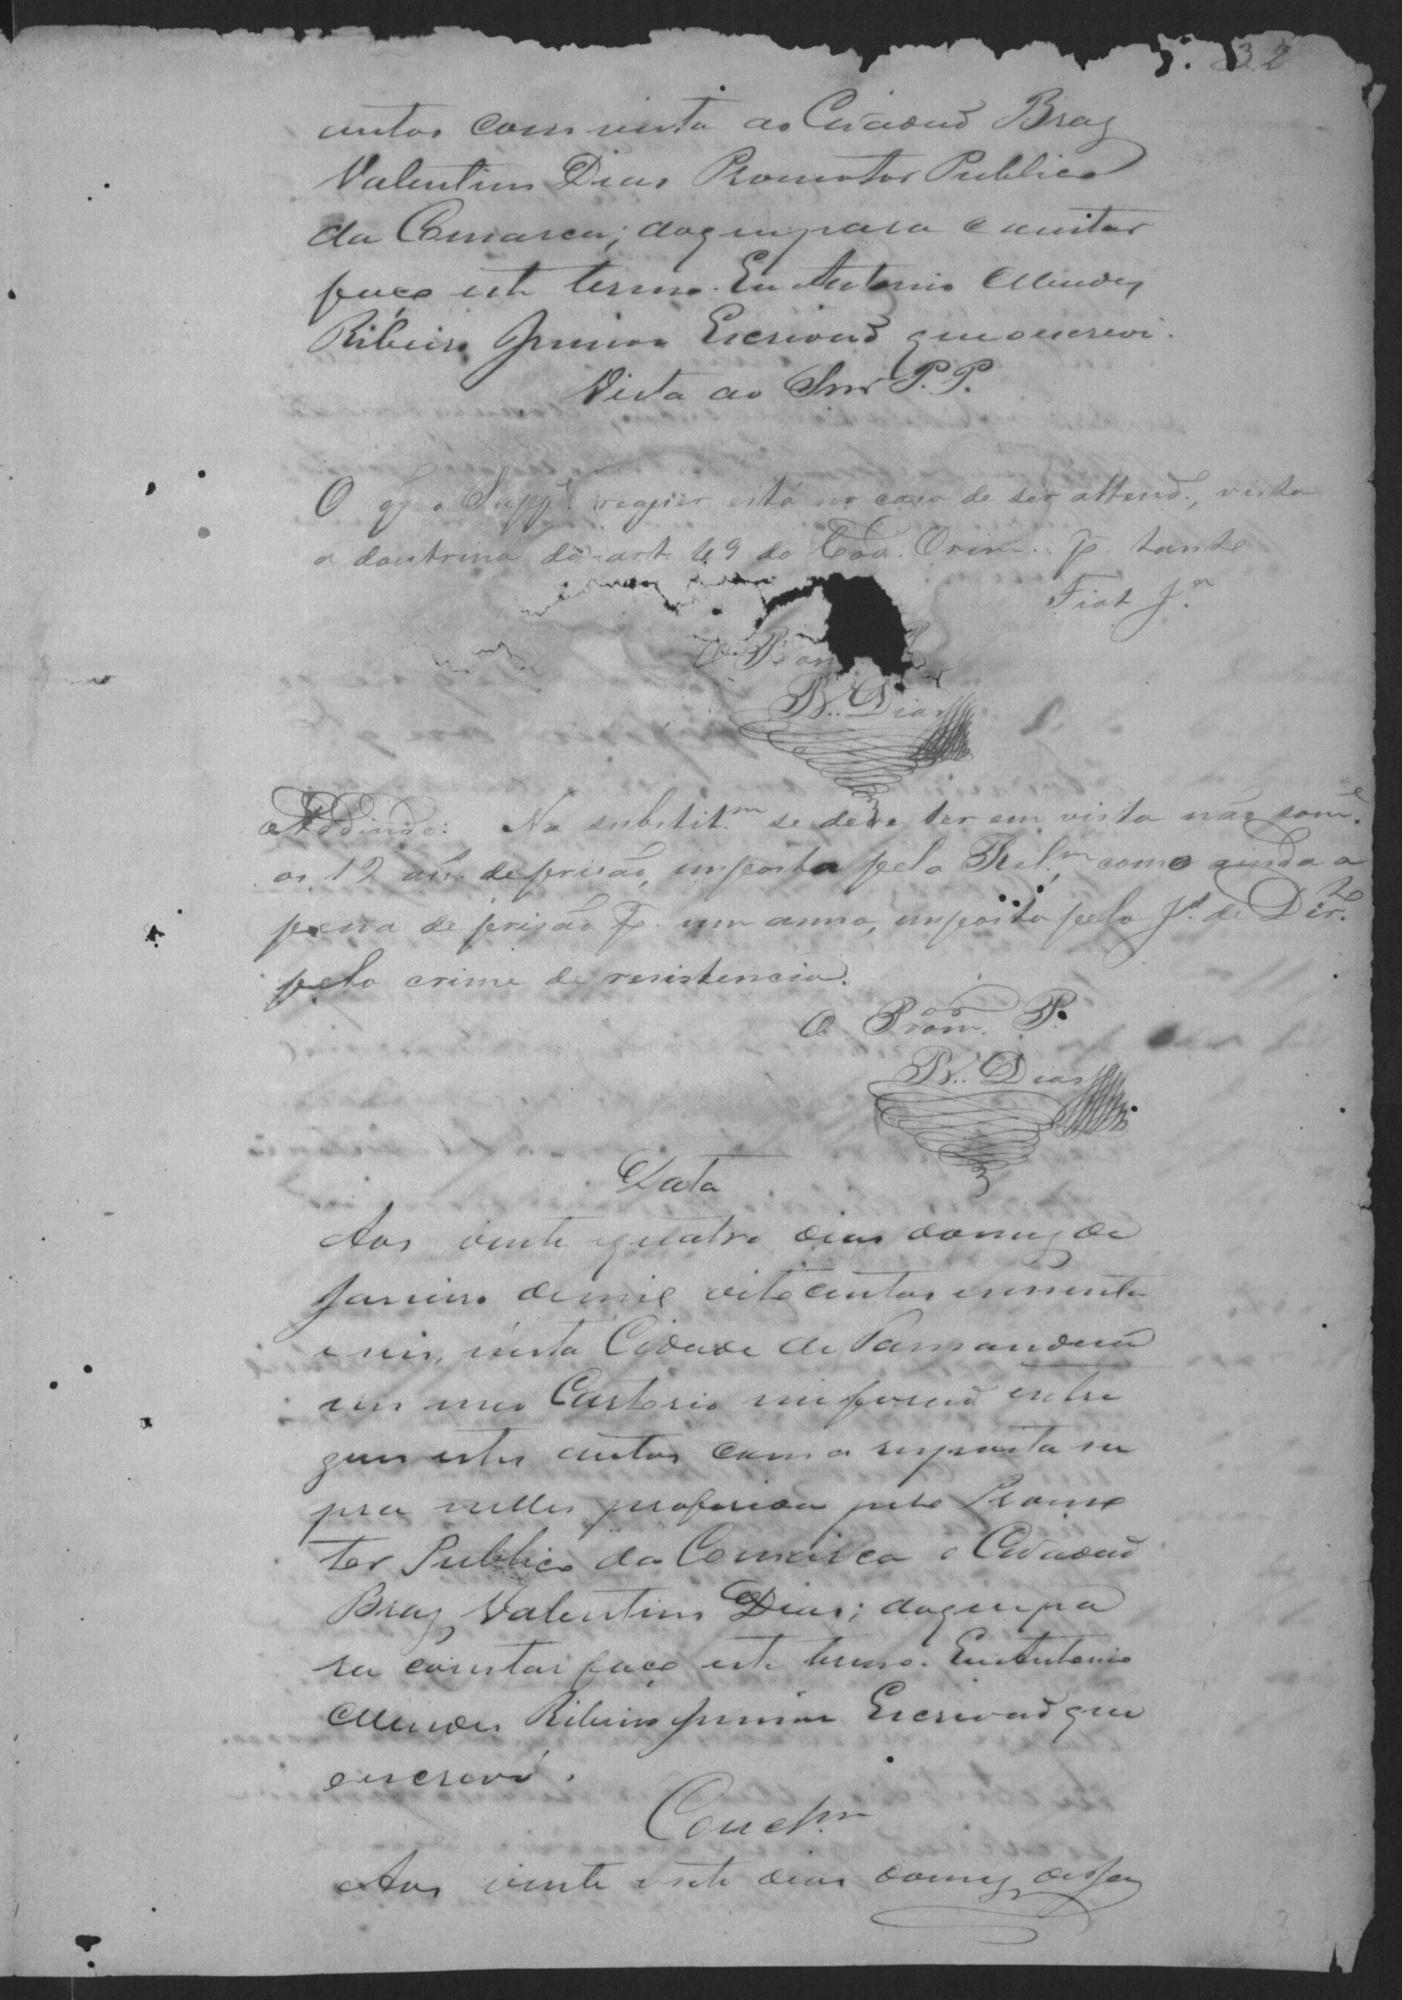 32
autos com vista ao Cidadaõ Braz
Valentim Dias Promotor Publico
da Comarca; do que para constar
faço este termo. Eu Antonio Mendes
Ribeiro Junior Escrivaõ que o escrevi.
Vista ao Snr P. P.
O q̃ o Supp.e requer está no caso de ser attend.o, vista
a doutrina do art. 49 do Cod. Crim. p. tanto
Fiat J.a
O Prom
B. V. Dias
Addindo: Na substit.m se deve ter em vista não som.e
os 12 an. de prisão, imposta pelo Rel.m, como ainda a
pena de prisão p. um anno, imposta pelo J. de Dir.to
pelo crime de resistencia.
O Prom. P.
B. V. Dias
Data
Aos vinte quatro dias do mez de
Janeiro de mil oitocentos e noventa
e seis, nesta Cidade de
em meo Cartorio me foraõ entre
gues estes autos com a resposta su
pra nelles proferida pelo Promo
tor Publico da Comarca o Cidadaõ
Braz Valentim Dias; do que pa
ra constar faço este termo. Eu Antonio
Mendes Ribeiro Junior Escrivaõ que
o escrevi.
Concl.m
Aos vinte e sete dias do mez de Jan